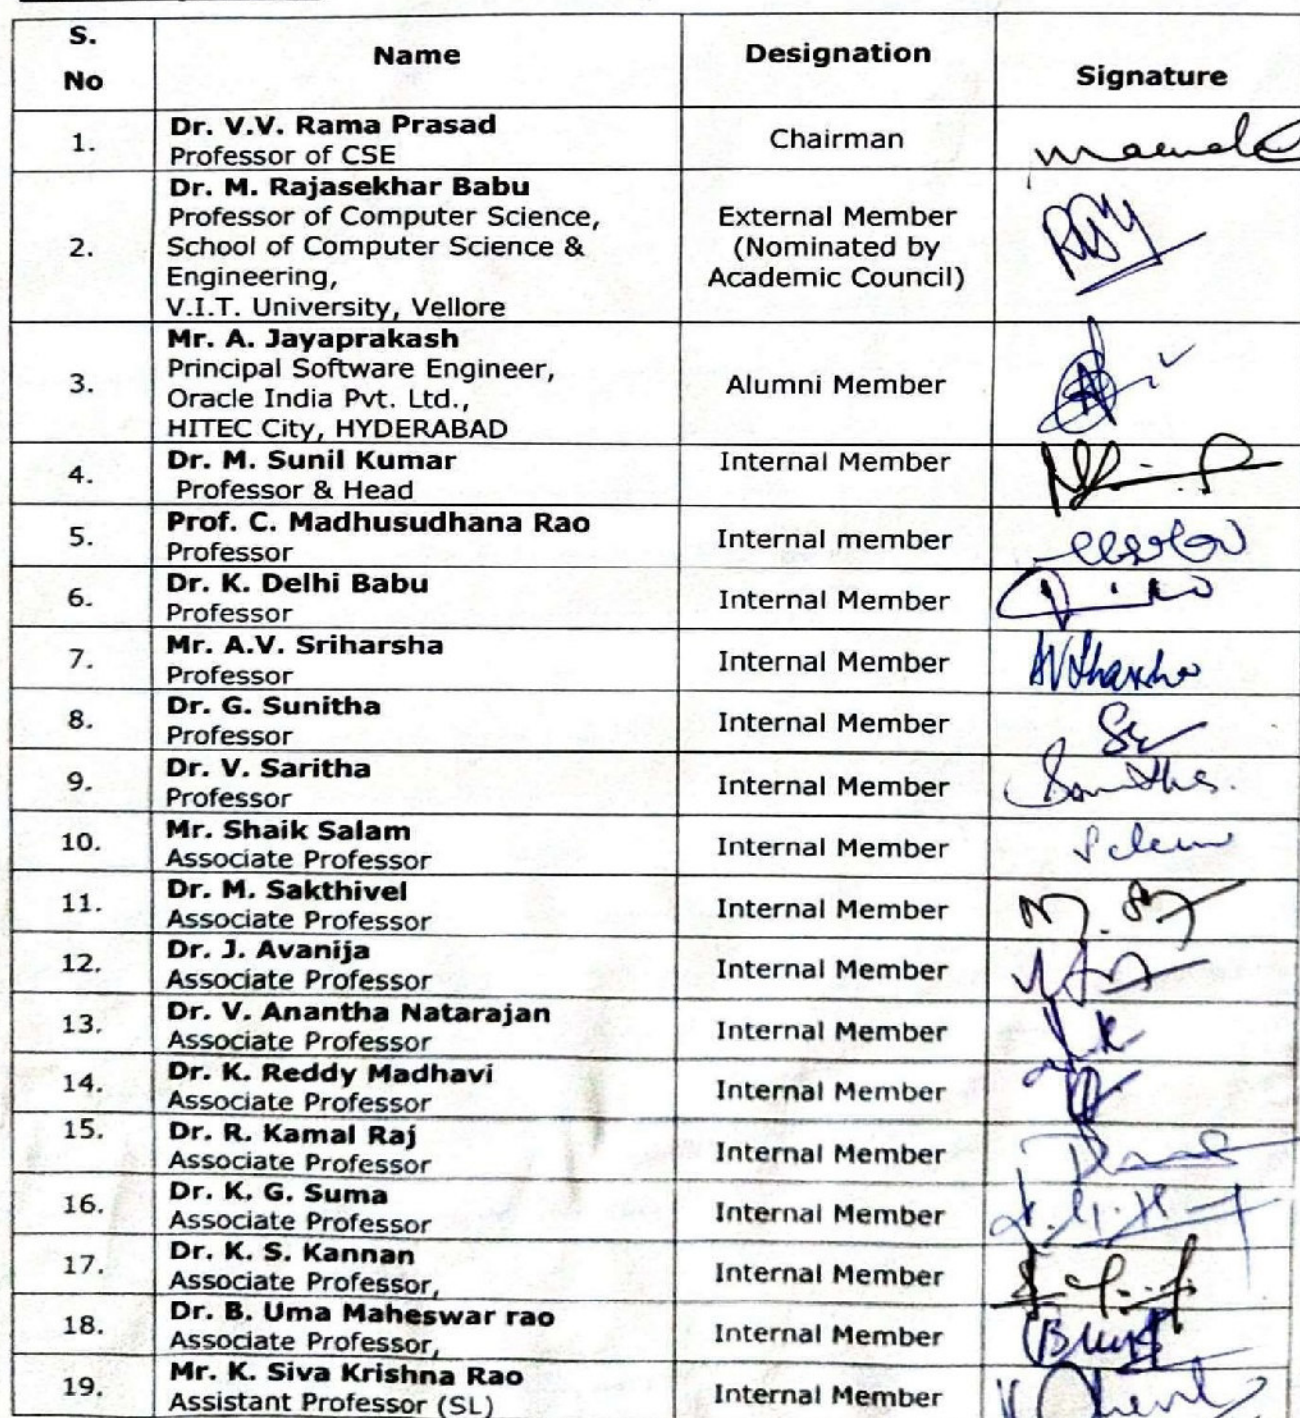 S.
No
Name
Designation
Signature
1.
Dr. V.V. Rama Prasad
Professor of CSE
Chairman
2.
Dr. M. Rajasekhar Babu
Professor of Computer Science,
School of Computer Science &
Engineering,
V.I.T. University, Vellore
External Member
(Nominated by
Academic Council)
3.
Mr. A. Jayaprakash
Principal Software Engineer,
Oracle India Pvt. Ltd.,
HITEC City, HYDERABAD
Alumni Member
4.
Dr. M. Sunil Kumar
Professor & Head
Internal Member
5.
Prof. C. Madhusudhana Rao
Professor
Internal member
6.
Dr. K. Delhi Babu
Professor
Internal Member
7.
Mr. A.V. Sriharsha
Professor
Internal Member
8.
Dr. G. Sunitha
Professor
Internal Member
9.
Dr. V. Saritha
Professor
Internal Member
10.
Mr. Shaik Salam
Associate Professor
Internal Member
11.
Dr. M. Sakthivel
Associate Professor
Internal Member
12.
Dr. J. Avanija
Associate Professor
Internal Member
13.
Dr. V. Anantha Natarajan
Associate Professor
Internal Member
14.
Dr. K. Reddy Madhavi
Associate Professor
Internal Member
15.
Dr. R. Kamal Raj
Associate Professor
Internal Member
16.
Dr. K. G. Suma
Associate Professor
Internal Member
17.
Dr. K. S. Kannan
Associate Professor,
Internal Member
18.
Dr. B. Uma Maheswar rao
Associate Professor,
Internal Member
19.
Mr. K. Siva Krishna Rao
Assistant Professor (SL)
Internal Member